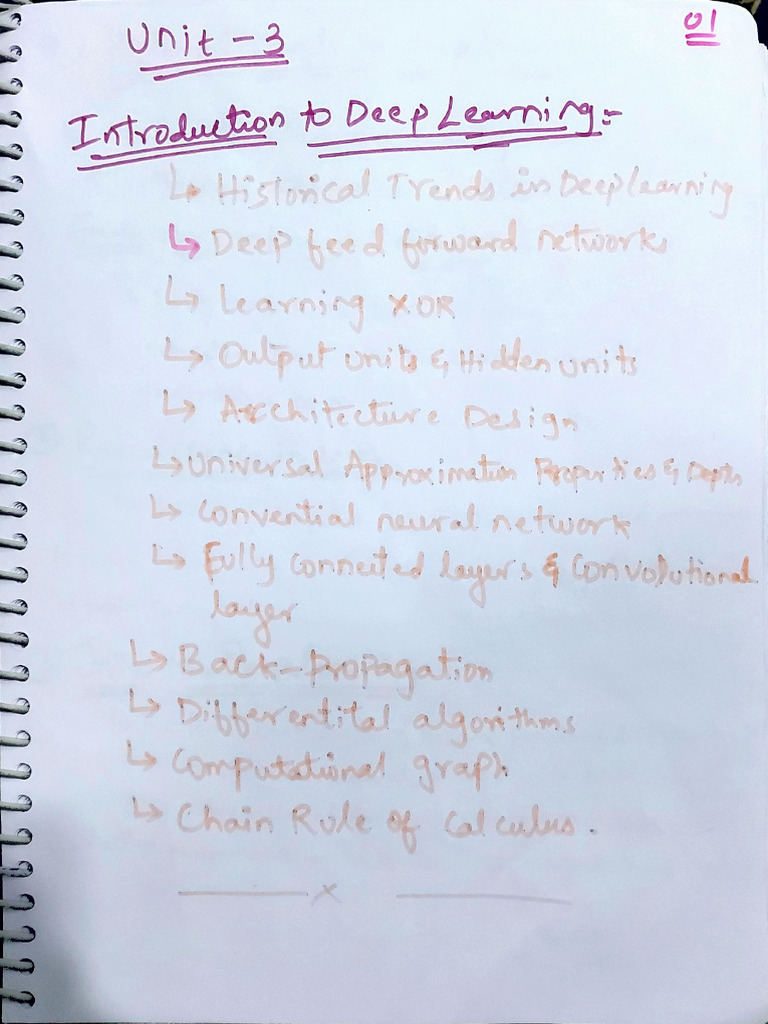 01
Unit - 3
Introduction to Deep Learning:-
↳ Historical Trends in Deep learning
↳ Deep feed forward networks
↳ Learning XOR
↳ Output units & Hidden units
↳ Architecture Design
↳ Universal Approximation Properties & Depth
↳ Convential neural network
↳ Fully connected layers & Convolutional
layer
↳ Back-Propagation
↳ Differentital algorithms
↳ Computational graph
↳ Chain Rule of Calculus.
x